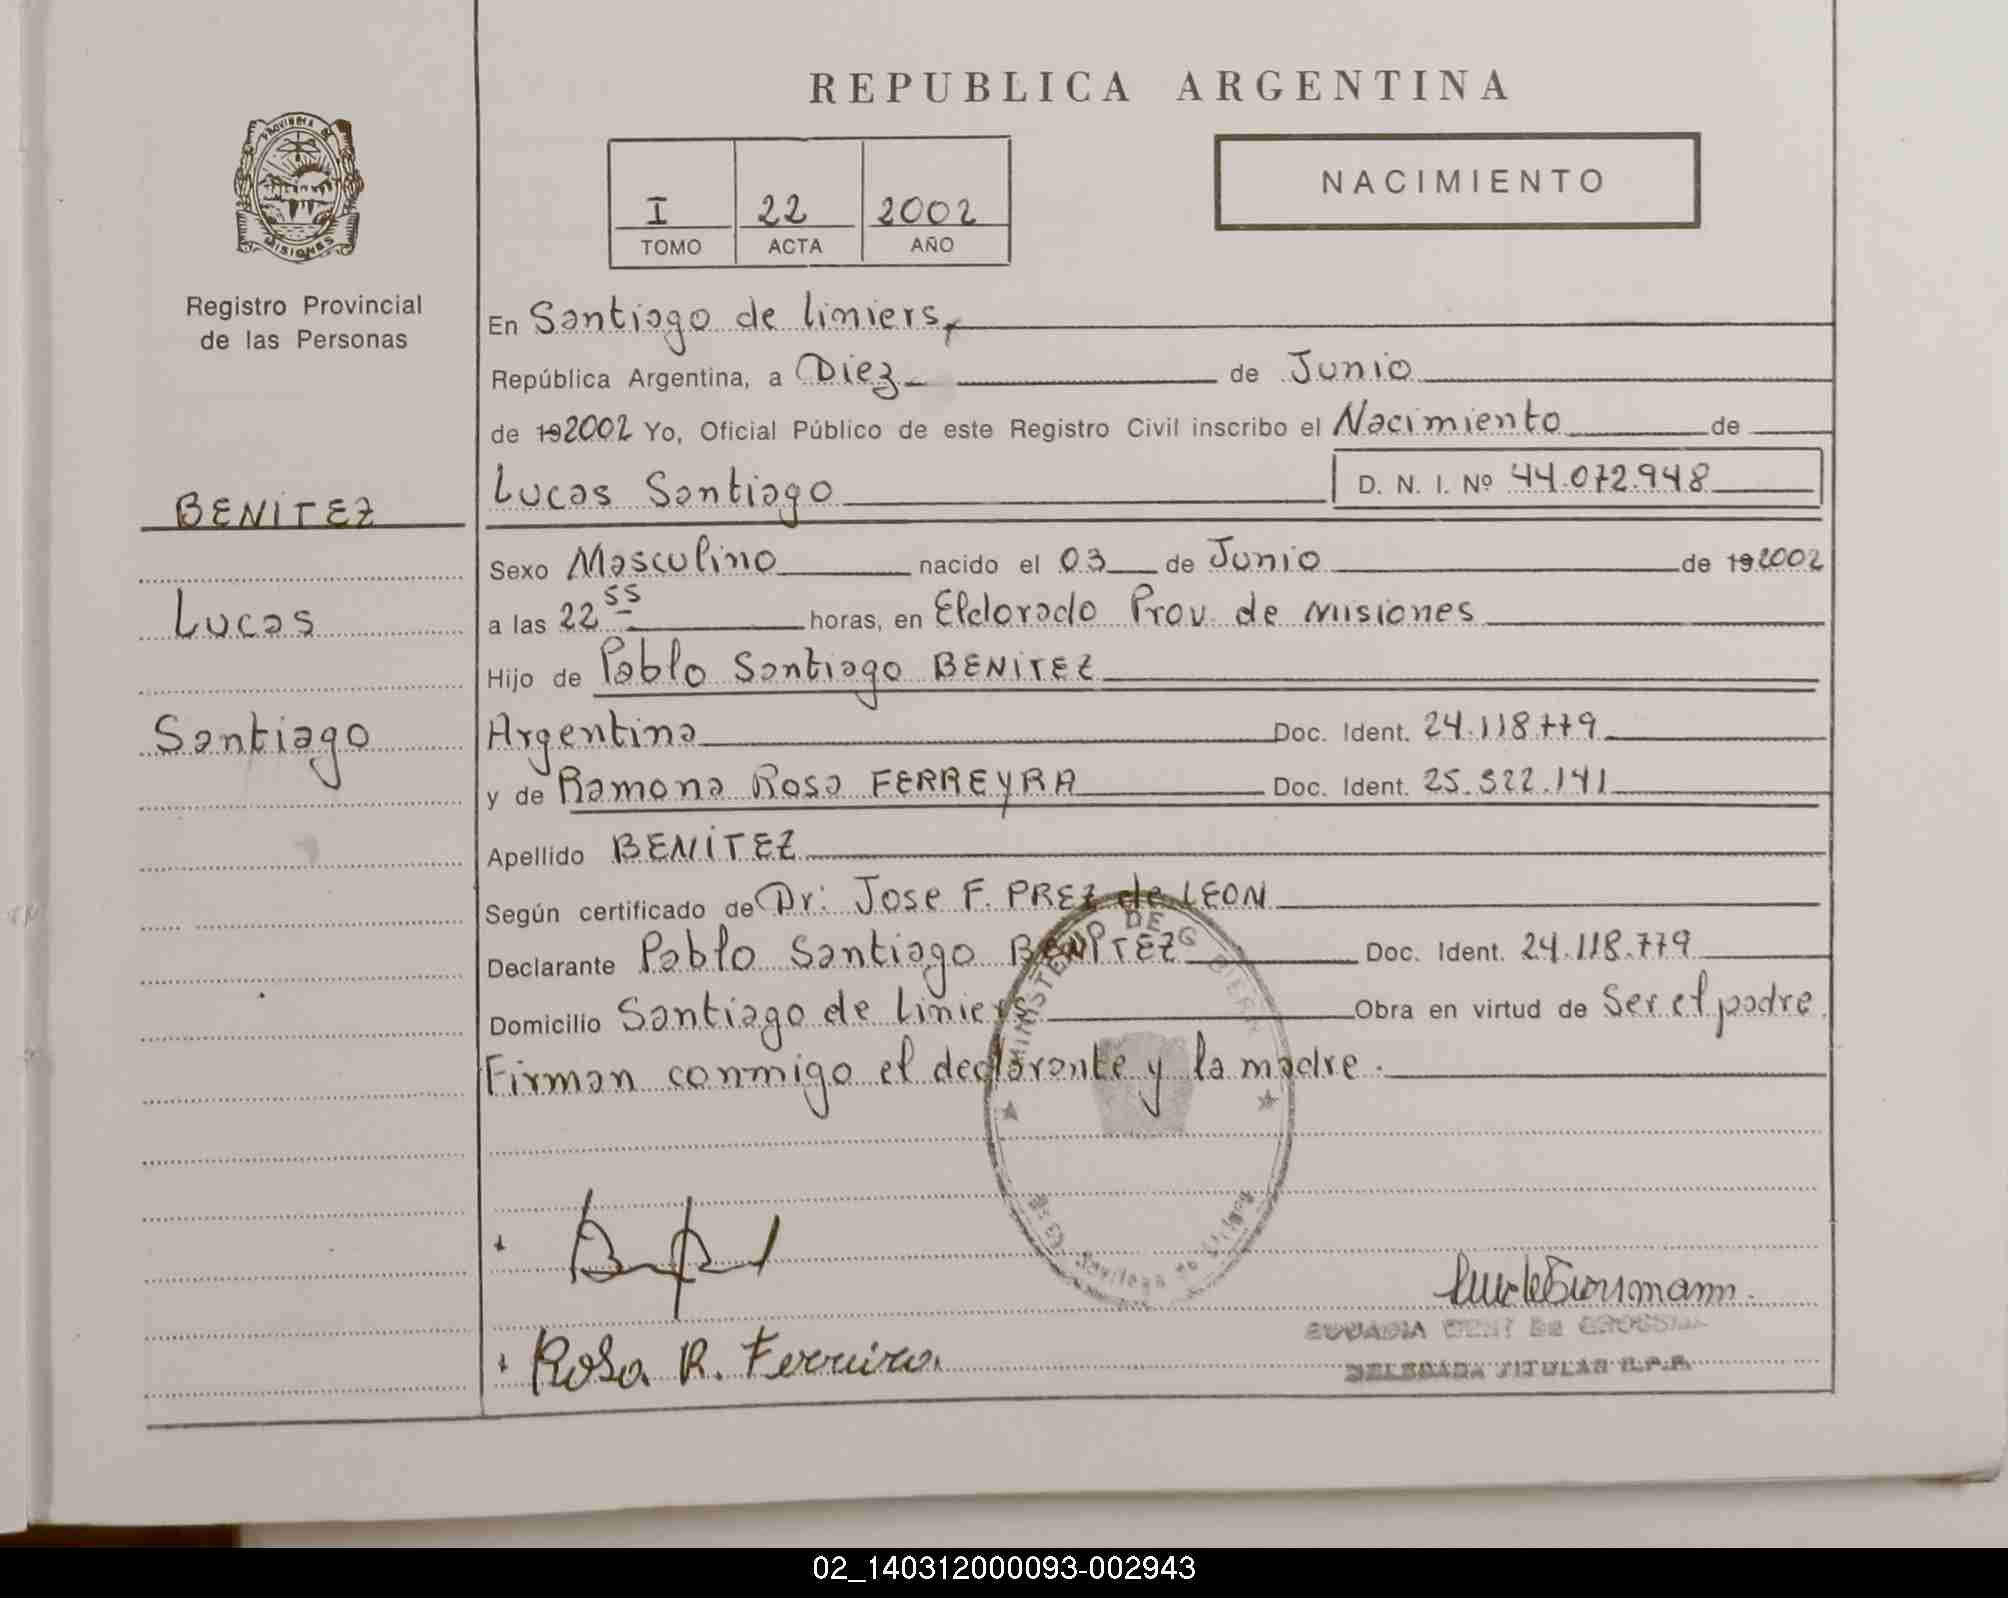 REPUBLICA ARGENTINA
PROVINCIA DE
MISIONES
Registro Provincial
de las Personas
I 22 2002
TOMO ACTA AÑO
NACIMIENTO
En Santiago de Liniers,
República Argentina, a Diez de Junio
de 192002 Yo, Oficial Público de este Registro Civil inscribo el Nacimiento de
BENITEZ
Lucas Santiago D. N. I. Nº 44.072.948
Sexo Masculino nacido el 03 de Junio de 192002
Lucas
a las 22 55 horas, en Eldorado Prov. de Misiones
Hijo de Pablo Santiago BENITEZ
Santiago
Argentina Doc. Ident. 24.118.779
y de Ramona Rosa FERREYRA Doc. Ident. 25.522.141
Apellido BENITEZ
Según certificado de Dr: Jose F. PREZ de LEON
Declarante Pablo Santiago BENITEZ Doc. Ident. 24.118.779
Domicilio Santiago de Liniers Obra en virtud de Ser el padre
Firman conmigo el declarante y la madre.
MINISTERIO DE GOBIERN
Rosa R. Ferreira
DELEGADA TITULAR R.P.P.
02_140312000093-002943